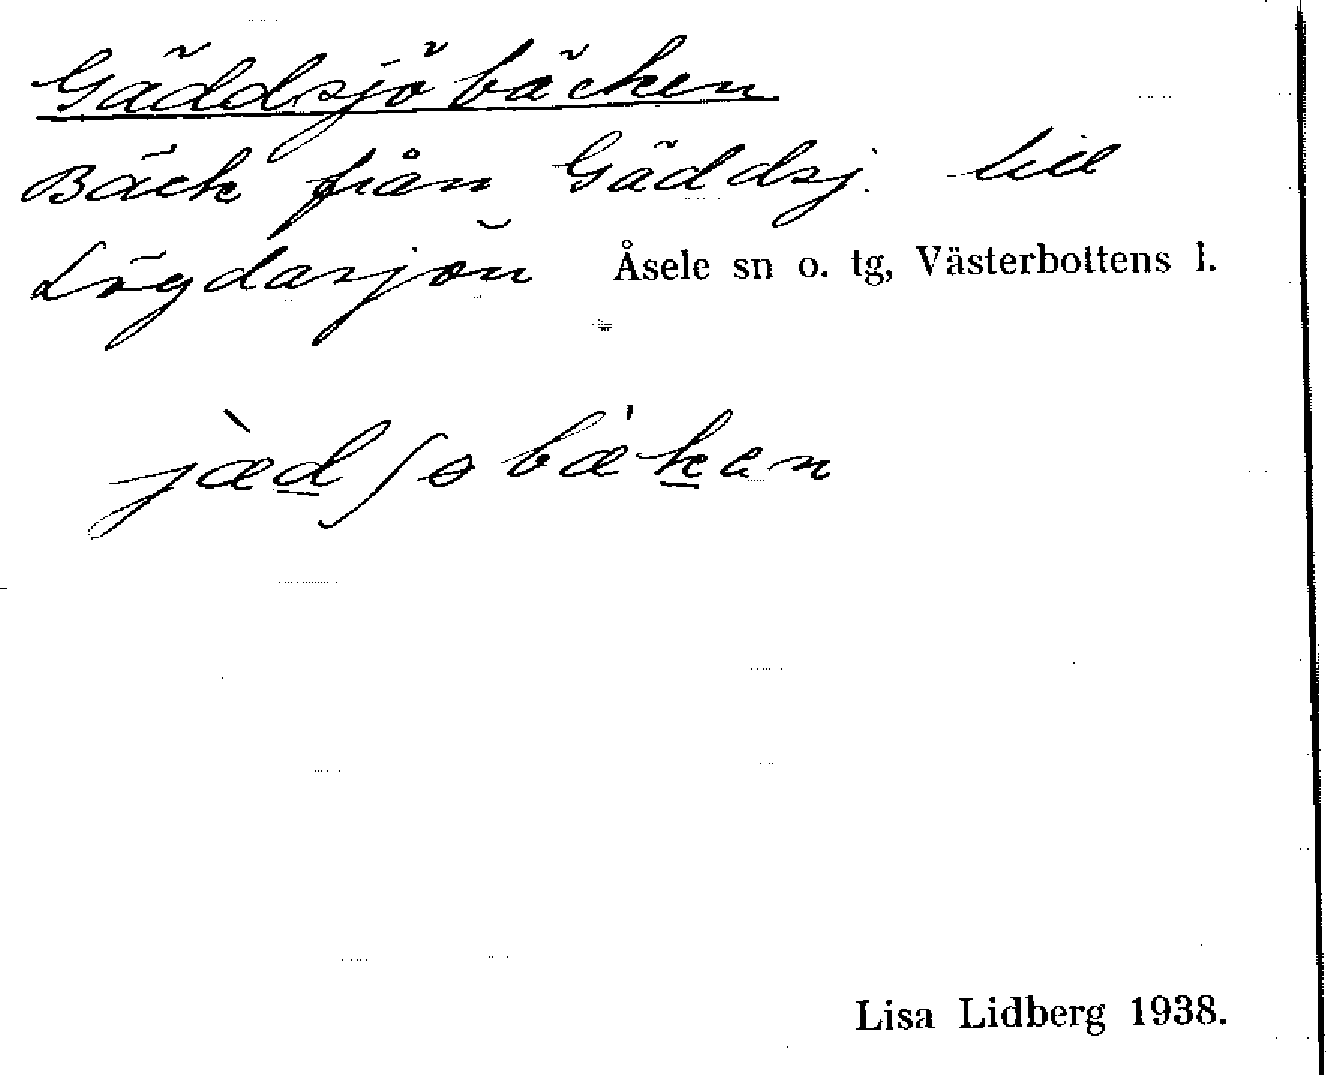 Gäddsjöbäcken
Bäck från Gäddsj. till
Lögdasjön Åsele sn o. tg, Västerbottens l.
jæ̀d̲ʃɵbæ'k̲en
Lisa Lidberg 1938.